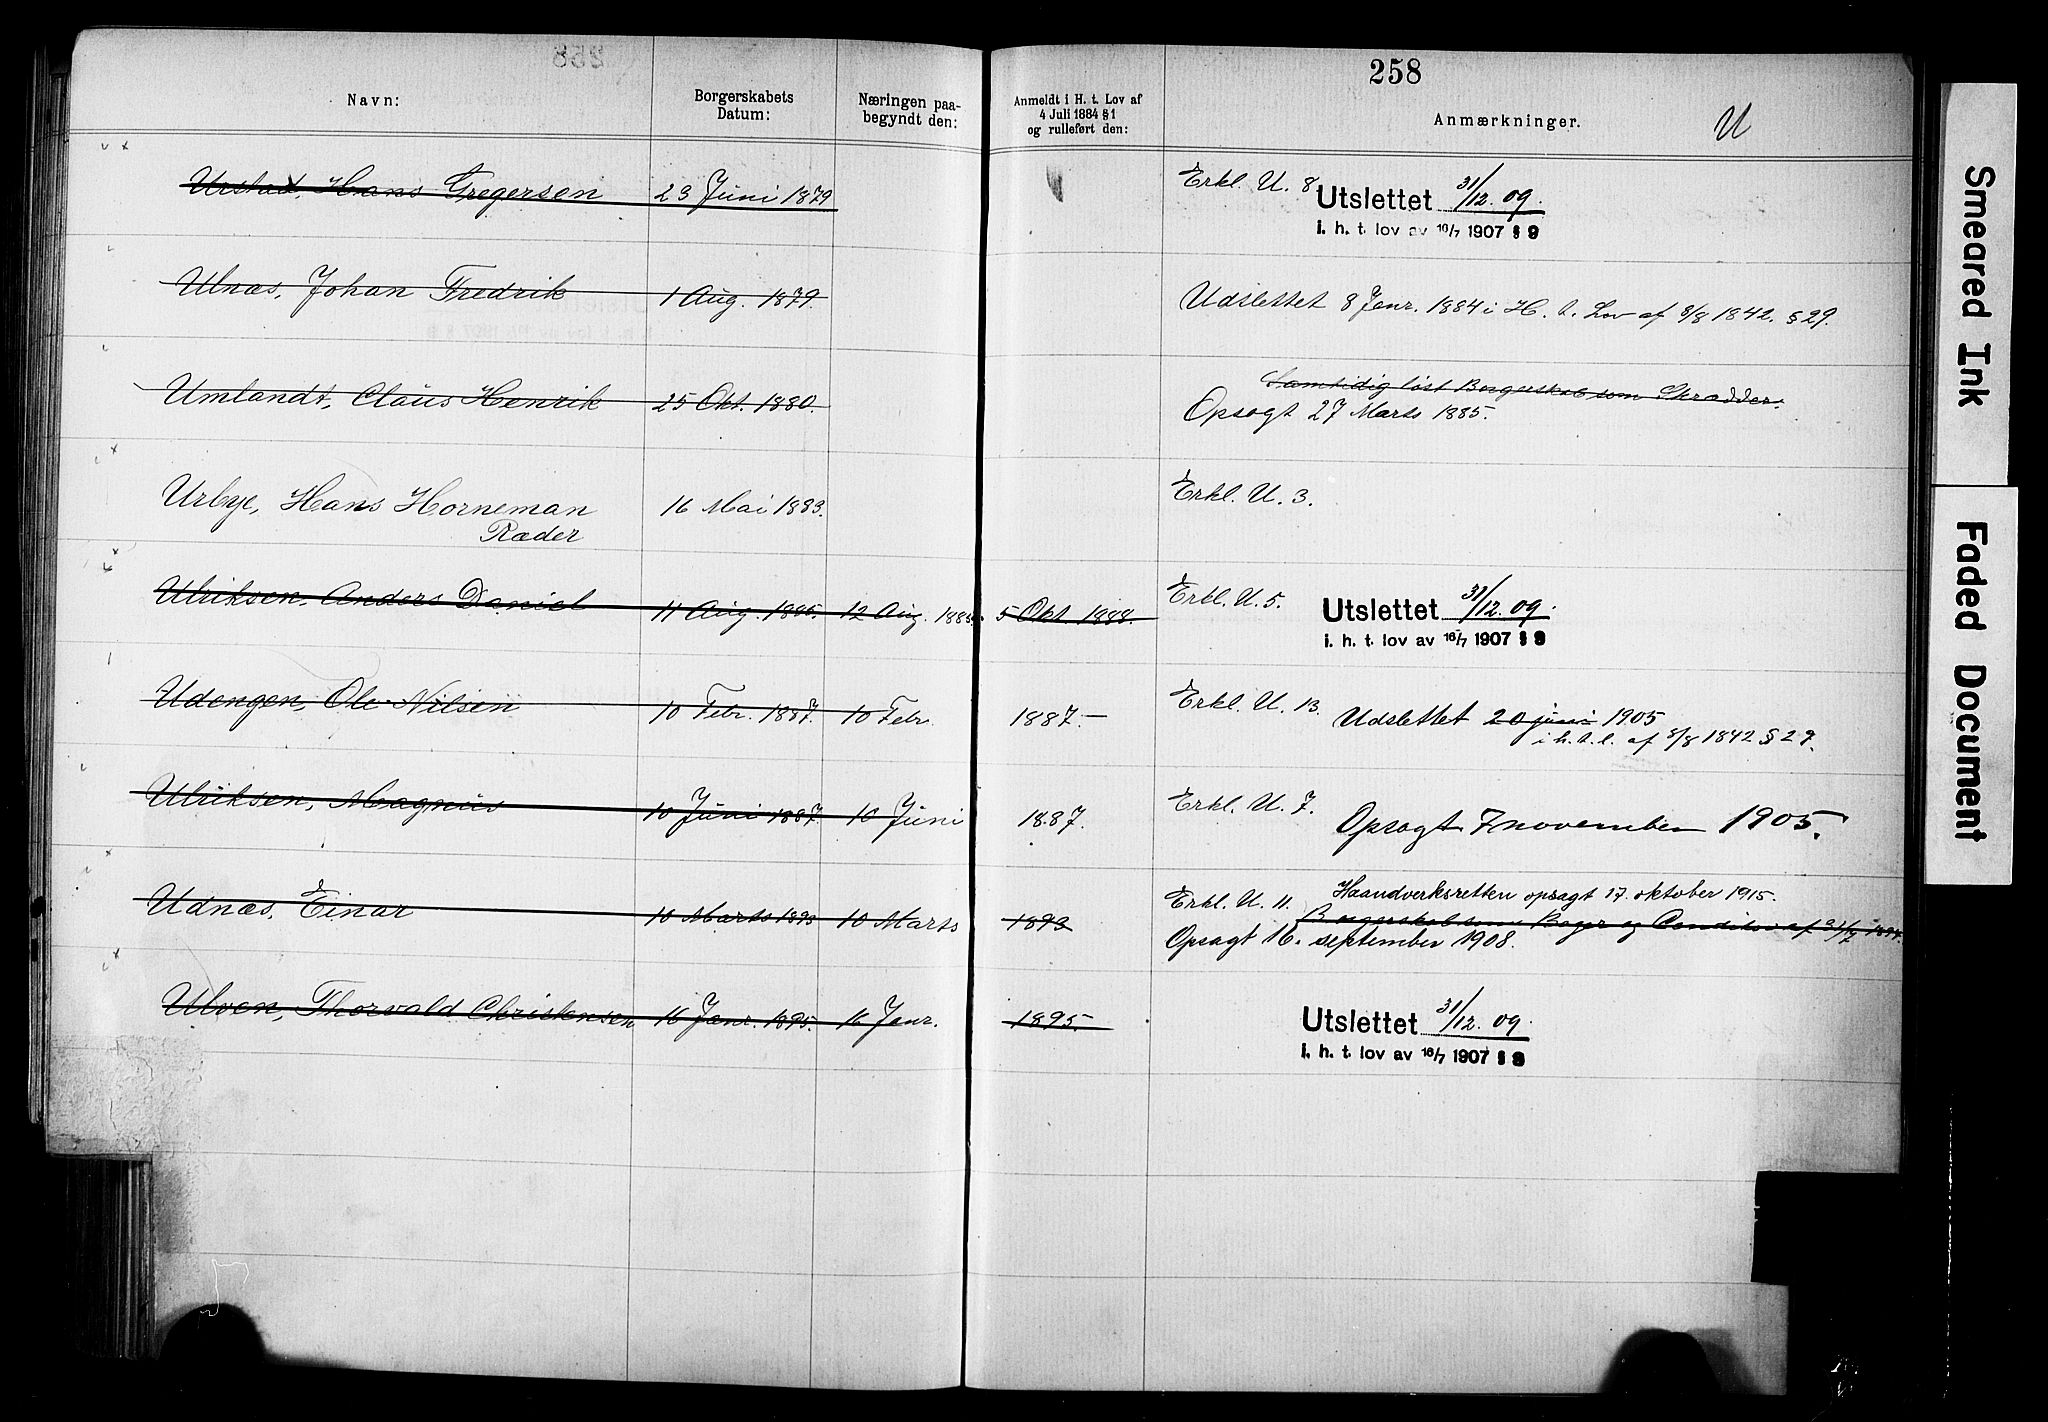 258
Navn: Borgerskabets Datum: Næringen paa- begyndt den: Anmeldt i H. t. Lov af 4 Juli 1884 § 1 og rulleført den: Anmærkninger. U
Urstad, Hans Gregersen 23 Juni 1879 Erkl. U. 8 Utslettet 31/12. 09.
i. h. t. lov av 16/7 1907 § 9
Ulnæs, Johan Fredrik 1 Aug. 1879. Udslettet 8 Janr. 1884 i H. t. Lov af 8/8 1842. § 29.
Samtidig løst Borgerskab som Skrædder.
Umlandt, Claus Henrik 25 Okt. 1880. Opsagt 27 Marts 1885.
Urbye, Hans Horneman 16 Mai 1883. Erkl. U. 3.
Ræder
Ulriksen, Anders Daniel 11 Aug. 1885. 12 Aug. 1885. 5 Okt. 1888. Erkl. U. 5. Utslettet 31/12. 09.
i. h. t. lov av 16/7 1907 § 9
Udengen, Ole Nilsen 10 Febr. 1887. 10 Febr. 1887.— Erkl. U. 13. Udslettet 20 juni 1905
i h. t. l. af 8/8 1842 § 29.
Ulriksen, Magnus 10 Juni 1887. 10 Juni 1887. Erkl. U. 7. Opsagt 7 november 1905.
Haandverksretten opsagt 17. oktober 1915.
Udnæs, Einar 10 Marts 1893 10 Marts 1893 Erkl. U. 11. Borgerskab som Bager og Conditor af 31/7 1894.
Opsagt 16. september 1908.
Ulven, Thorvald Christensen 16 Janr. 1895. 16 Janr. 1895. Utslettet 31/12. 09.
i. h. t. lov av 16/7 1907 § 9
Smeared Ink
Faded Document